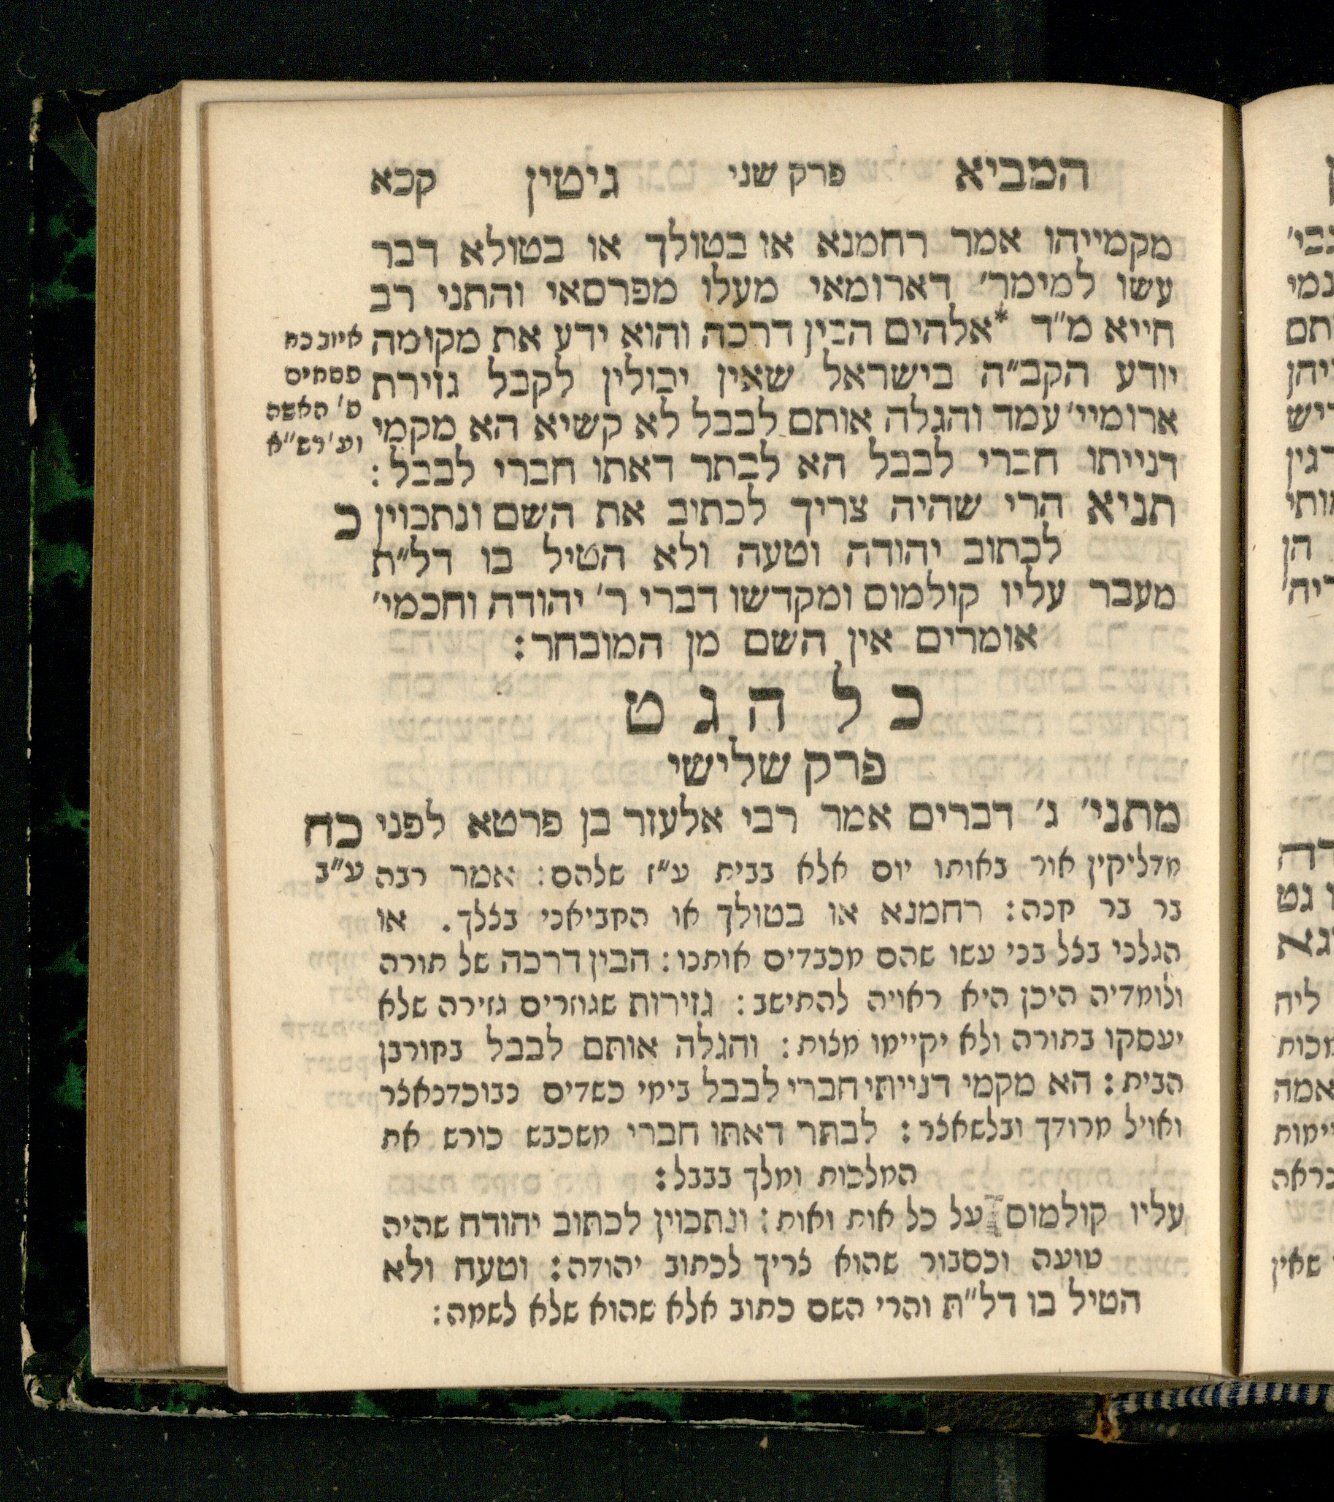 המביא פרק שני גיטין קכא
מקמייהו אמר רחמנא או בטולך או בטולא דבר
עשו למימר׳ דארומאי מעלו מפרסאי והתני רב
חייא מ״ד *אלהים הבין דרכה והוא ידע את מקומה
יודע הקב״ה בישראל שאין יכולין לקבל גזירת
ארומיי׳ עמד והגלה אותם לבבל לא קשיא הא מקמי
דנייתו חברי לבבל הא לבתר דאתו חברי לבבל:
תניא הרי שהיה צריך לכתוב את השם ונתכוין
לכתוב יהודה וטעה ולא הטיל בו דל״ת
מעבר עליו קולמוס ומקדשו דברי ר׳ יהודה וחכמי׳
אומרים אין השם מן המובחר:
איוב כח
פסחים
ט׳ האשה
וע׳ רש״א
כ
כל הגט
פרק שלישי
מתני׳ ג׳ דברים אמר רבי אלעזר בן פרטא לפני
כח
ע״ב
מדליקין אור באותו יום אלא בבית ע״ז שלהם: אמר רבה
בר בר חנה: רחמנא או בטולך או תחביאני בצלך. או
הגלני בצל בני עשו שהם מכבדים אותנו: הבין דרכה של תורה
ולומדיה היכן היא ראויה להתישב: גזירות שגוזרים גזירה שלא
יעסקו בתורה ולא יקיימו מצות: והגלה אותם לבבל בחורבן
הבית: הא מקמי דנייתי חברי לבבל בימי כשדים נבוכדנאצר
ואויל מרודך ובלשאצר: לבתר דאתו חברי משכבש כורש את
המלכות ומלך בבבל:
עליו קולמוס על כל אות ואות: ונתכוין לכתוב יהודה שהיה
טועה וכסבור שהוא צריך לכתוב יהודה: וטעה ולא
הטיל בו דל״ת והרי השם כתוב אלא שהוא שלא לשמה: